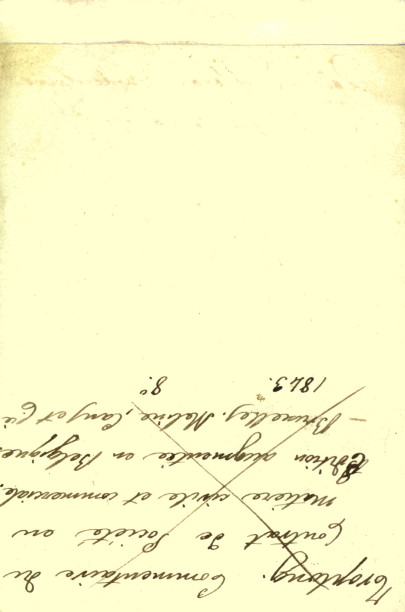 Troplong. Commentaire du
Contrat de Société en
matière civile et commerciale.
Edition augmentée en Belgique.
— Bruxelles. Meline, Cans et Cie
1843. 8º.